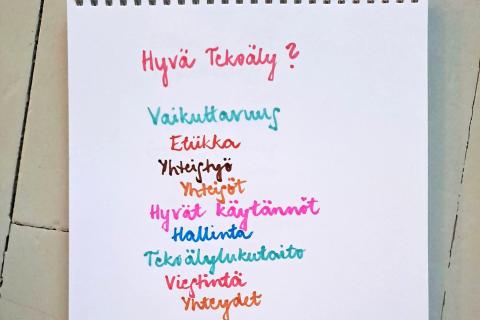 Hyvä Tekoäly?
Vaikuttavuus
Etiikka
Yhteistyö
Yhteisöt
Hyvät käytännöt
Hallinta
Tekoälylukutaito
Viestintä
Yhteydet